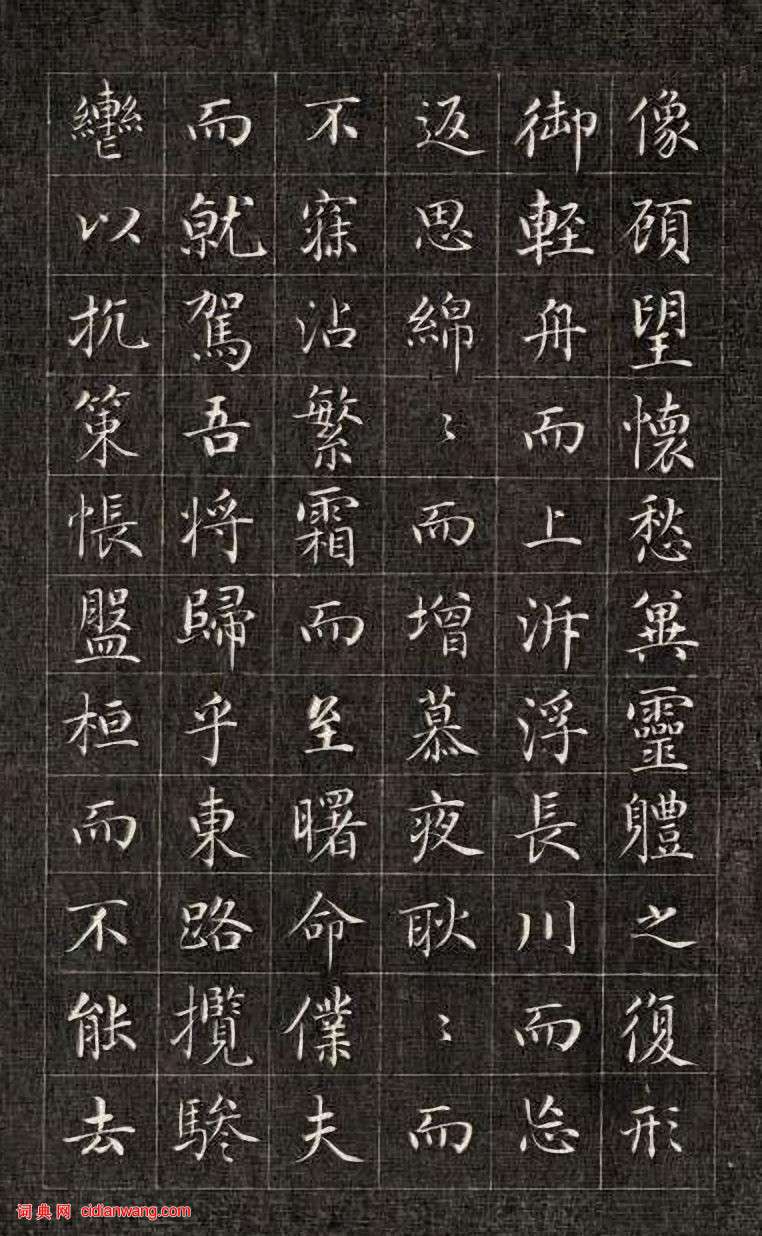 像頋望懷愁冀靈體之復形
御輕舟而上泝浮長川而忘
返思綿〻而增慕夜耿〻而
不寐沾繁霜而至曙命僕夫
而就駕吾將歸乎東路攬騑
轡以抗策悵盤桓而不能去
词典网 cidianwang.com